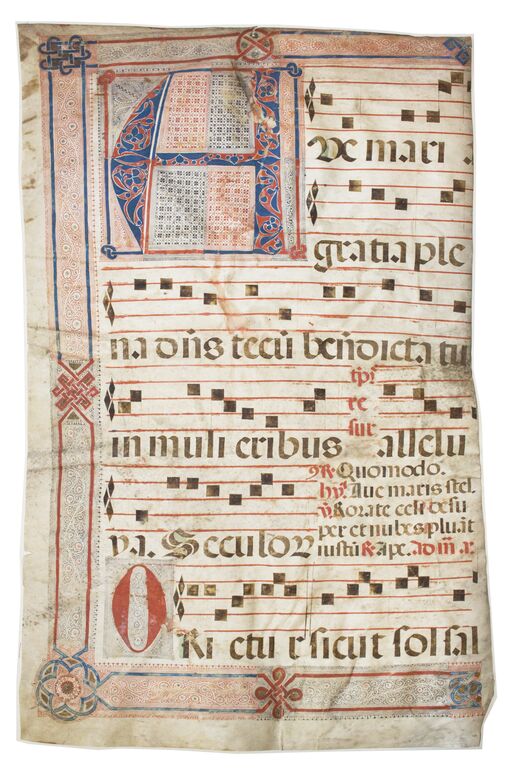 AVe mari
gratia ple
na dn̄s tecū ben̄dicta tu
re
sur
in muli eribus allelu
℟. Quomodo.
hȳ. Aue maris stel.
℣. Rorate celi desu
per et nubes pluāt
ya. Seculoꝝ iustū ℟. Ape. ad m̄ a:
ORi etur sicut sol sal